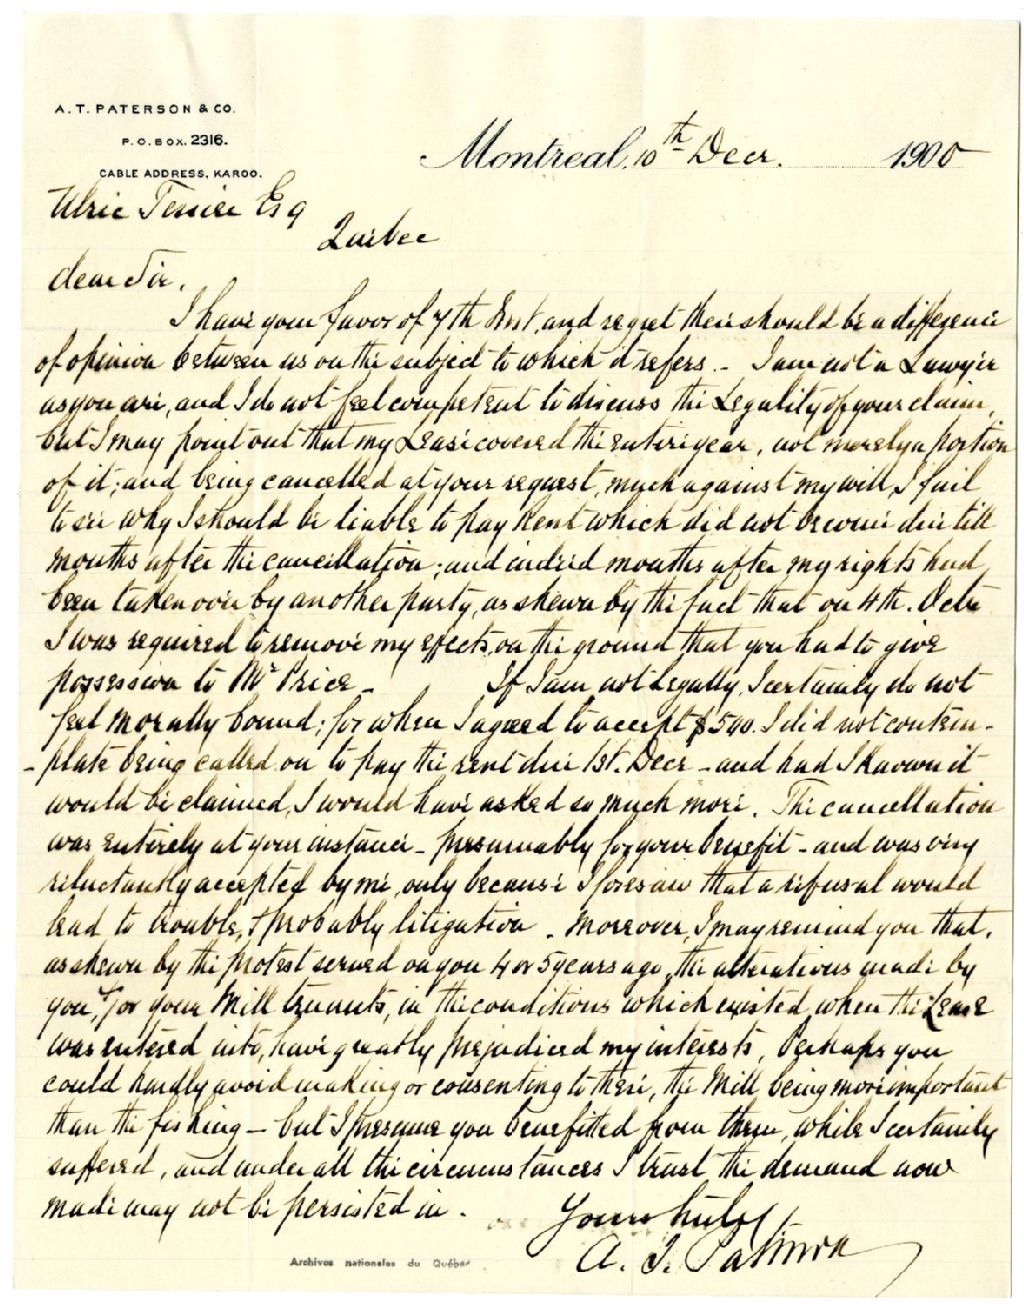 A. T. PATERSON & CO.
P. O. BOX. 2316.
CABLE ADDRESS, KAROO.
Montreal, 10th Decr. 1900
Ulric Tessier Esq
Quebec
dear Sir,
I have your favor of 7th Inst, and regret there should be a difference
of opinion between us on the subject to which it refers. - I am not a Lawyer
as you are, and I do not feel competent to discuss the Legality of your claim,
but I may point out that my Lease covered the entire year, not merely a portion
of it; and being cancelled at your request, much against my will, I fail
to see why I should be liable to pay Rent which did not become due till
months after the cancellation; and indeed months after my rights had
been taken over by another party, as shewn by the fact that on 4th. Octr
I was required to remove my effects, on the ground that you had to give
possession to Mr Price - If I am not Legally, I certainly do not
feel morally bound; for when I agreed to accept $500. I did not contem-
-plate being called on to pay the rent due 1st. Decr - and had I known it
would be claimed, I would have asked so much more. The cancellation
was entirely at your instance - presumably for your benefit - and was very
reluctantly accepted by me, only because I foresaw that a refusal would
lead to trouble, & probably litigation. Moreover, I may remind you that,
as shewn by the protest served on you 4 or 5 years ago, the alterations made by
you, or your Mill tenants, in the conditions which existed when the Lease
was entered into, have greatly prejudiced my interests. Perhaps you
could hardly avoid making or consenting to them, the Mill being more important
than the fishing - but I presume you benefitted from them, while I certainly
suffered, and under all the circumstances I trust the demand now
made may not be persisted in.
Yours truly
A. T. Paterson
Archives nationales du Québec